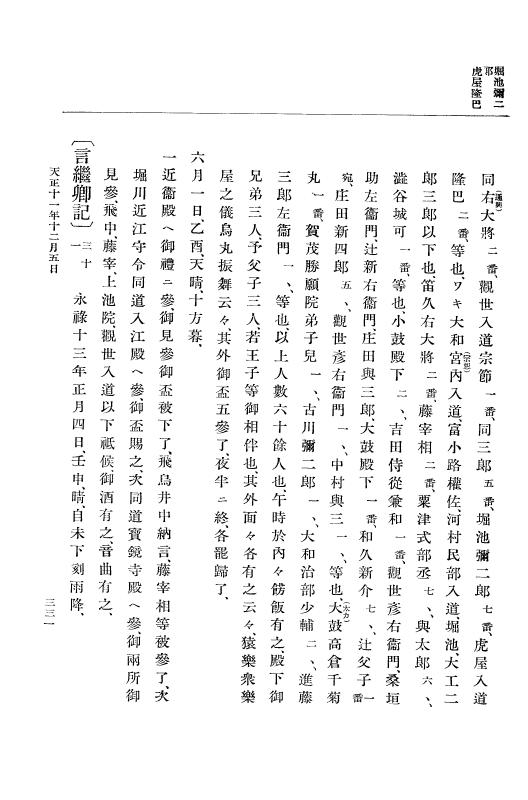 堀池彌二郎
虎屋隆巴
同右大將二番、觀世入道宗節一番、同三郎五番、堀池彌二郎七番、虎屋入道
隆巴二番、等也、ワキ大和宮內入道、富小路權佐、河村民部入道、堀池、大工二
郎三郎以下也、笛久右大將二番、藤宰相二番、粟津式部丞七ヽ、與太郎六ヽ、
澁谷城可一番、等也、小鼓殿下二ヽ、吉田侍從兼和一番、觀世彥右衞門、桑垣
助左衞門、辻新右衞門、庄田與三郎、大鼓殿下一番、和久新介七ヽ、辻父子一番
宛、庄田新四郎五ヽ、觀世彥右衞門一ヽ、中村與三一ヽ、等也、大鼓高倉千菊
丸一番、賀茂勝願院弟子兒一ヽ、古川彌二郎一ヽ、大和治部少輔二ヽ、進藤
三郎左衞門一ヽ、等也、以上人數六十餘人也、午時於內々餝飯有之、殿下御
兄弟三人、予父子三人、若王子等御相伴也、其外面々各有之云々、猿樂衆樂
屋之儀烏丸振舞云々、其外御盃五參了、夜半ニ終、各罷歸了、
六月一日、乙酉、天晴、十方暮、
一近衞殿ヘ御禮ニ參、御見參御盃被下了、飛鳥井中納言、藤宰相等被參了、次
堀川近江守令同道入江殿ヘ參、御盃賜之、次同道寶鏡寺殿ヘ參、御兩所御
見參、飛中、藤宰、上池院、觀世入道以下祗候、御酒有之、音曲有之、
〔言繼卿記〕三十一 永祿十三年正月四日、壬申、晴、自未下刻雨降、
天正十一年十二月五日
三三一